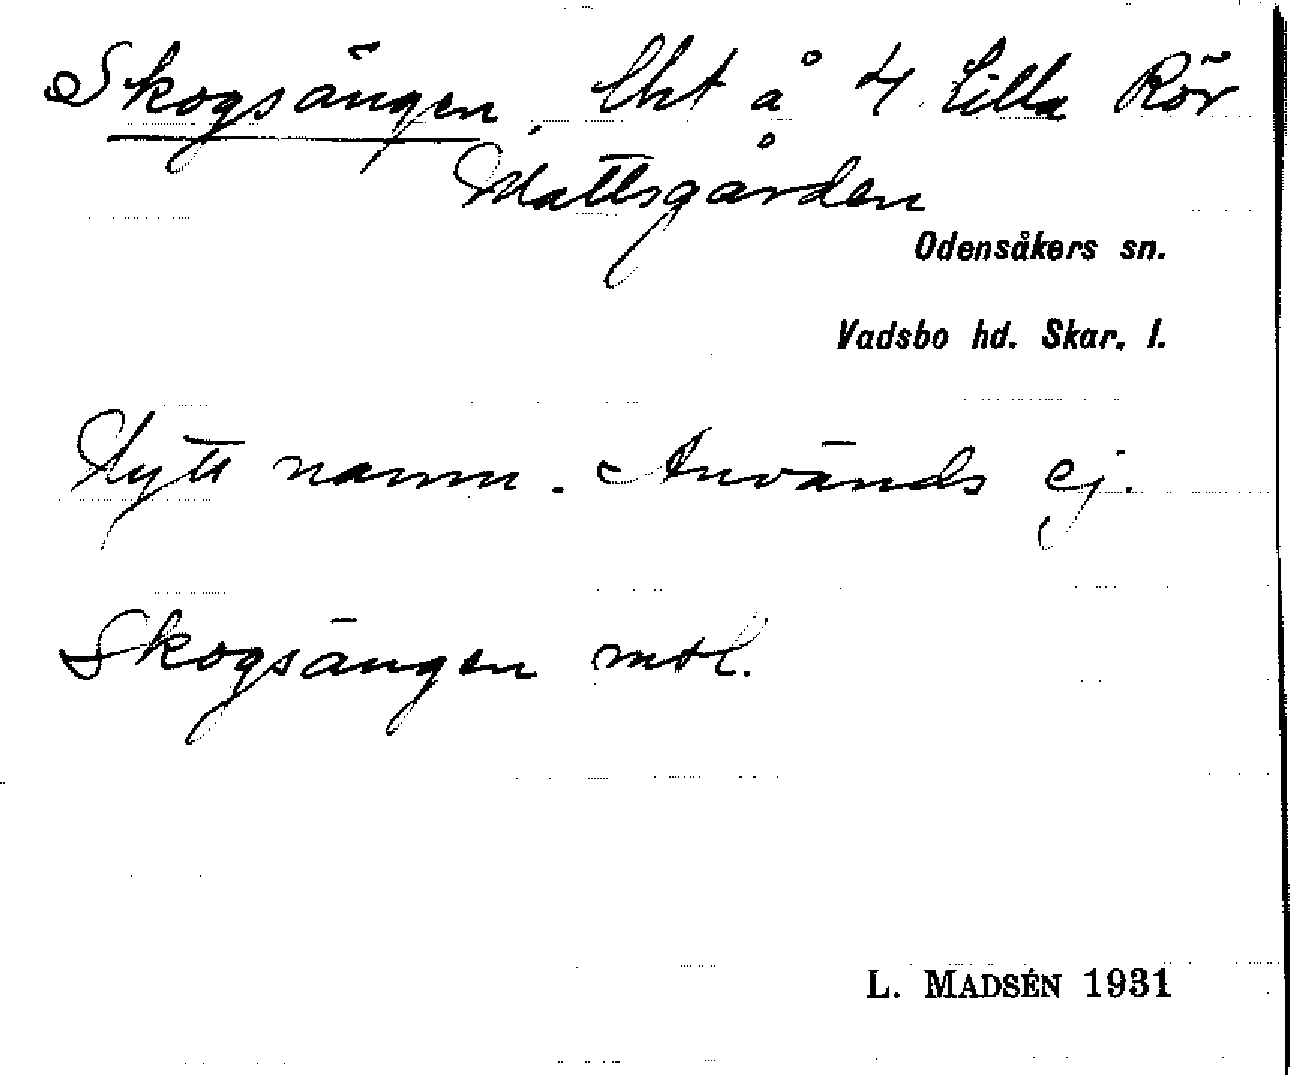 Skogsängen, lht å 4 Lilla Rör
Mattsgården
Odensåkers sn.
Vadsbo hd. Skar. l.
Nytt namn. Används ej.
Skogsängen mtl.
L. MADSÉN 1931